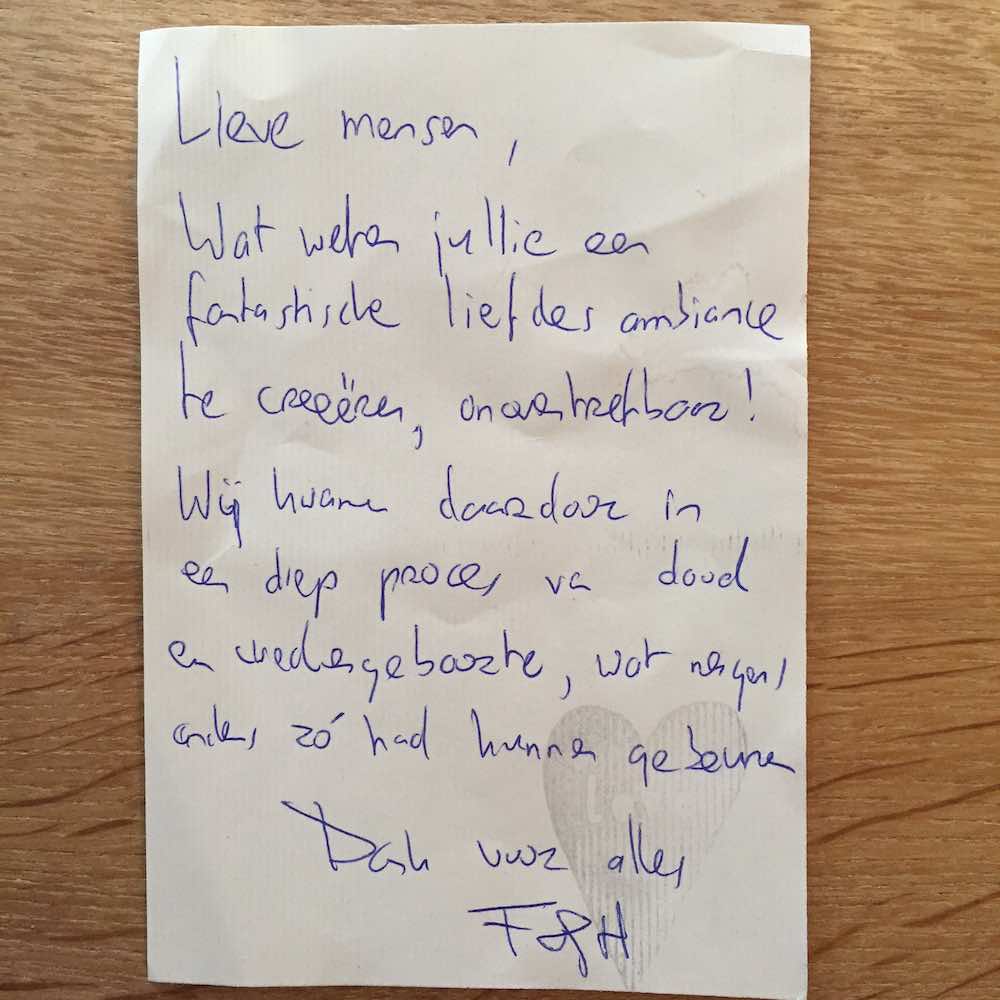 Lieve mensen,
Wat weten jullie een
fantastische liefdes ambiance
te creeëren, onovertrefbaar!
Wij kwamen daardoor in
een diep proces van dood
en wedergeboorte, wat nergens
anders zó had kunnen gebeuren
Dank voor alles
F&H